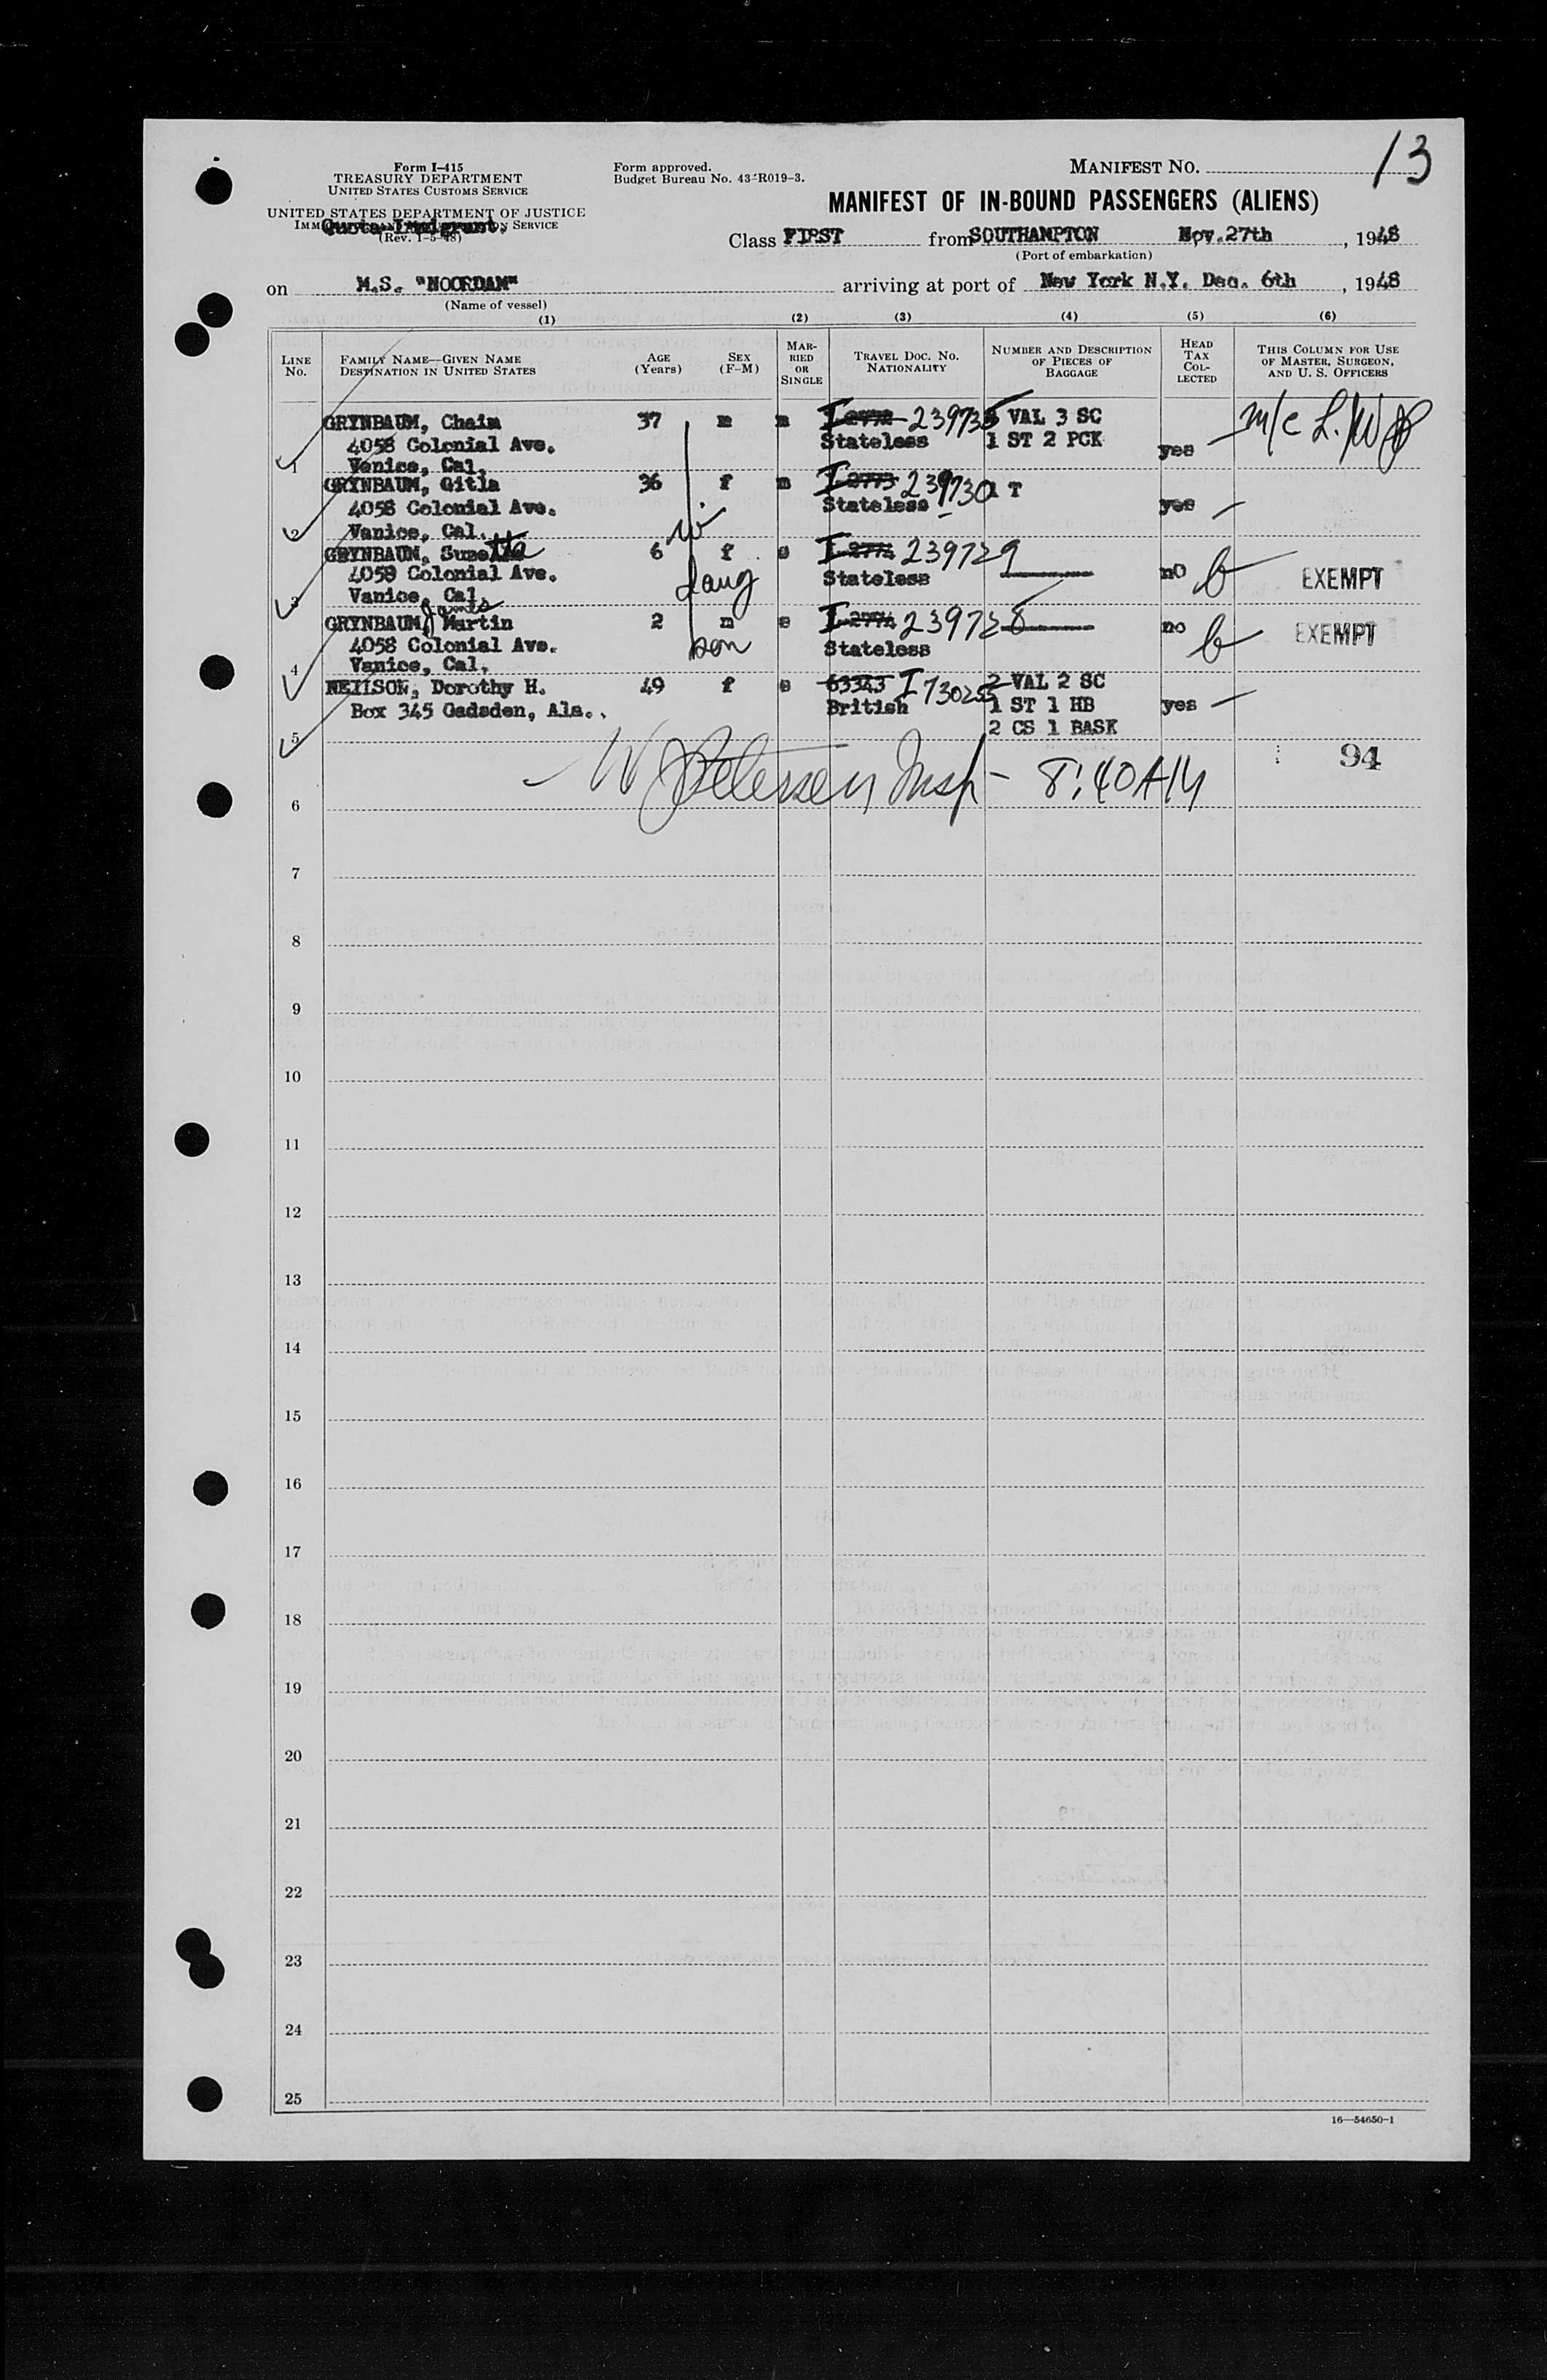 13
Form I-415
TREASURY DEPARTMENT
UNITED STATES CUSTOMS SERVICE
UNITED STATES DEPARTMENT OF JUSTICE
Quota Immigrant.
(Rev. 1-5-48)
Form approved.
Budget Bureau No. 43-R019-3.
MANIFEST NO.
MANIFEST OF IN-BOUND PASSENGERS (ALIENS)
Class FIRST from SOUTHAMPTON Nov. 27th, 1948
(Port of embarkation)
on M.S. "NOORDAM" arriving at port of New York N.Y. Dec. 6th, 1948
(Name of vessel)
(1) (2) (3) (4) (5) (6)
LINE NO.
FAMILY NAME—GIVEN NAME
DESTINATION IN UNITED STATES
AGE (Years)
SEX (F-M)
MARRIED OR SINGLE
TRAVEL DOC. NO. NATIONALITY
NUMBER AND DESCRIPTION OF PIECES OF BAGGAGE
HEAD TAX COLLECTED
THIS COLUMN FOR USE OF MASTER, SURGEON, AND U. S. OFFICERS
GRYNBAUM, Chaim 37 m m I 239735 VAL 3 SC m/c
4058 Colonial Ave. Stateless 1 ST 2 PCK yes
1 Venice, Cal.
GRYNBAUM, Gitla 36 f m I-2773 239730 1 T
4058 Colonial Ave. Stateless yes
2 Vanice, Cal. w
GRYNBAUM, Suzetta 6 f s I 239729
4058 Colonial Ave. daug Stateless no EXEMPT
3 Vanice, Cal.
GRYNBAUM, James Martin 2 m s I 239728 no EXEMPT
4058 Colonial Ave. son Stateless
4 Vanice, Cal.
NEILSON, Dorothy H. 49 f s 63343 I 730255 2 VAL 2 SC
Box 345 Gadsden, Ala. British 1 ST 1 HB yes
5 2 CS 1 BASK
94
W Petersen Insp - 8:40 AM
6
7
8
9
10
11
12
13
14
15
16
17
18
19
20
21
22
23
24
25
16—54650-1